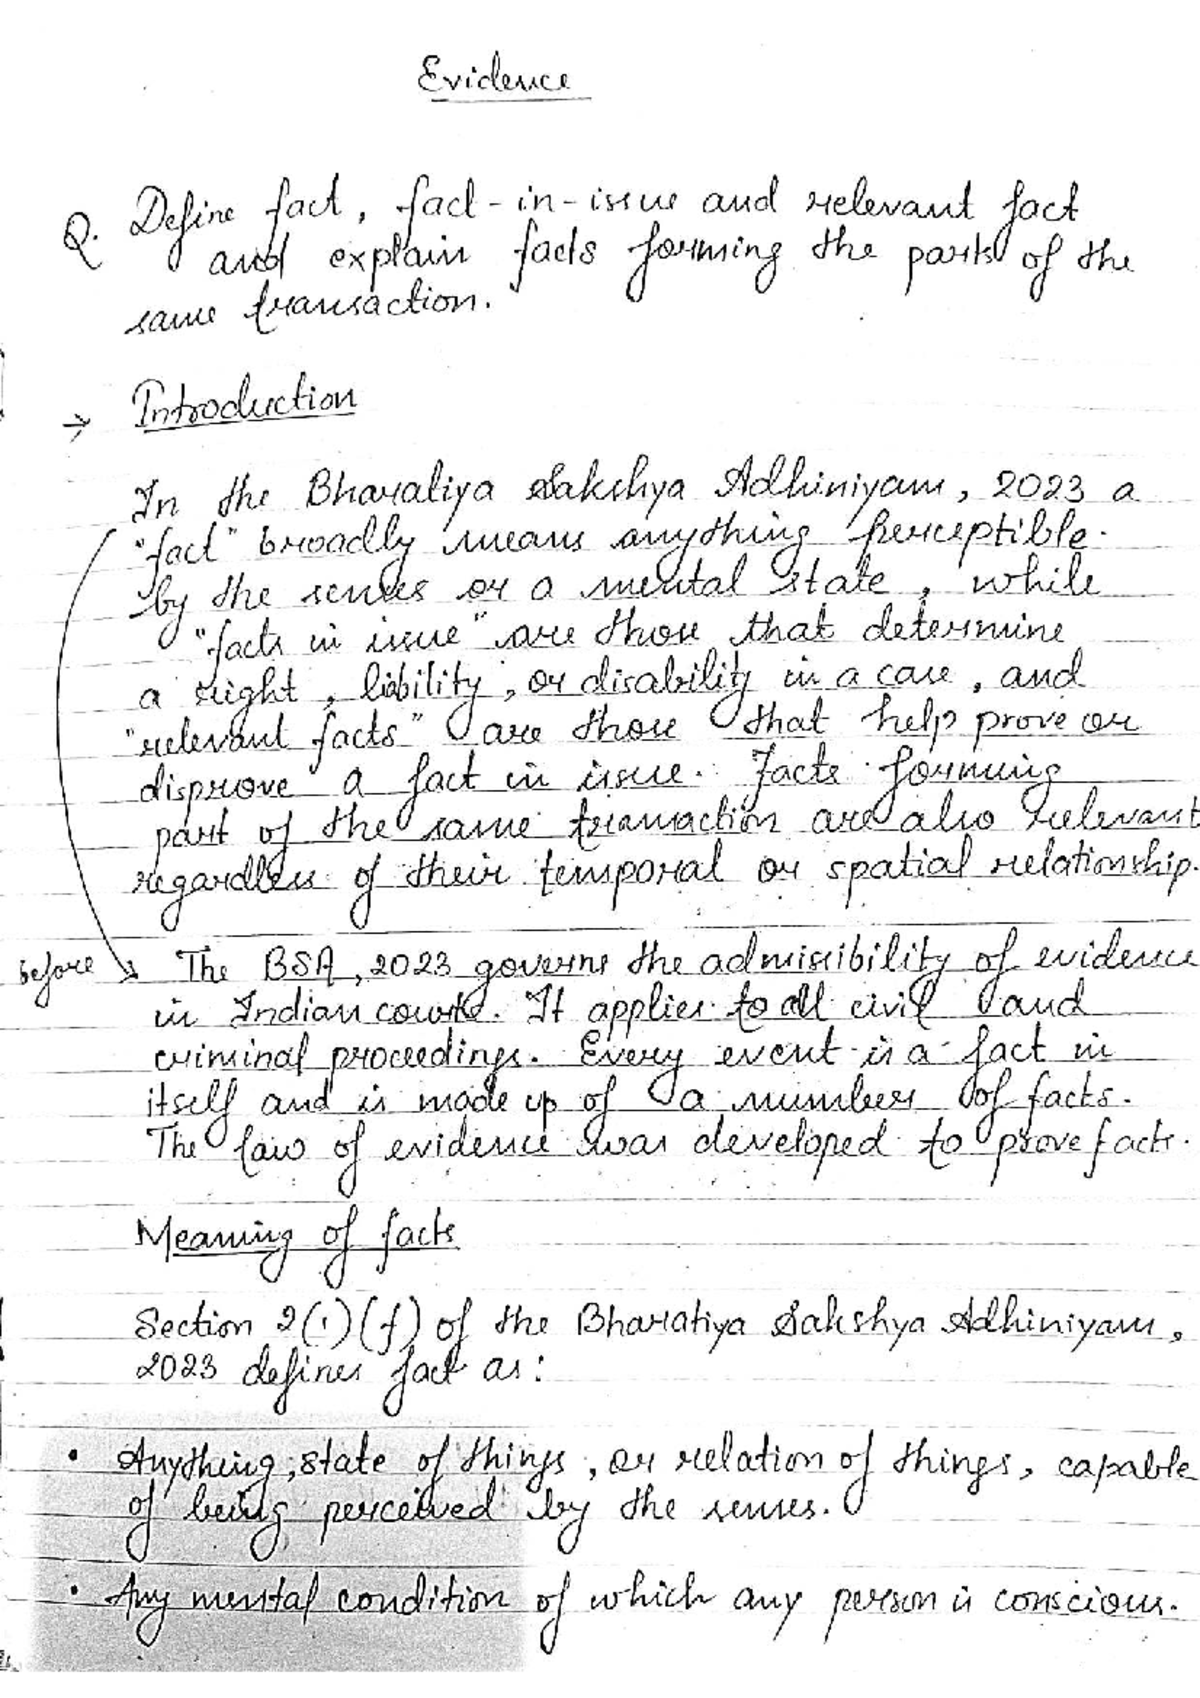 Evidence
Q. Define fact, fact-in-issue and relevant fact
and explain facts forming the parts of the
same transaction.
→ Introduction
In the Bharatiya Sakshya Adhiniyam, 2023 a
"fact" broadly means anything perceptible
by the senses or a mental state, while
"facts in issue" are those that determine
a right, liability, or disability in a case, and
"relevant facts" are those that help prove or
disprove a fact in issue. Facts forming
part of the same transaction are also relevant
regardless of their temporal or spatial relationship.
before → The BSA, 2023 governs the admissibility of evidence
in Indian courts. It applies to all civil and
criminal proceedings. Every event is a fact in
itself and is made up of a number of facts.
The law of evidence was developed to prove facts.
Meaning of facts
Section 2(1)(f) of the Bharatiya Sakshya Adhiniyam,
2023 defines fact as:
• Anything, state of things, or relation of things, capable
of being perceived by the senses.
• Any mental condition of which any person is conscious.